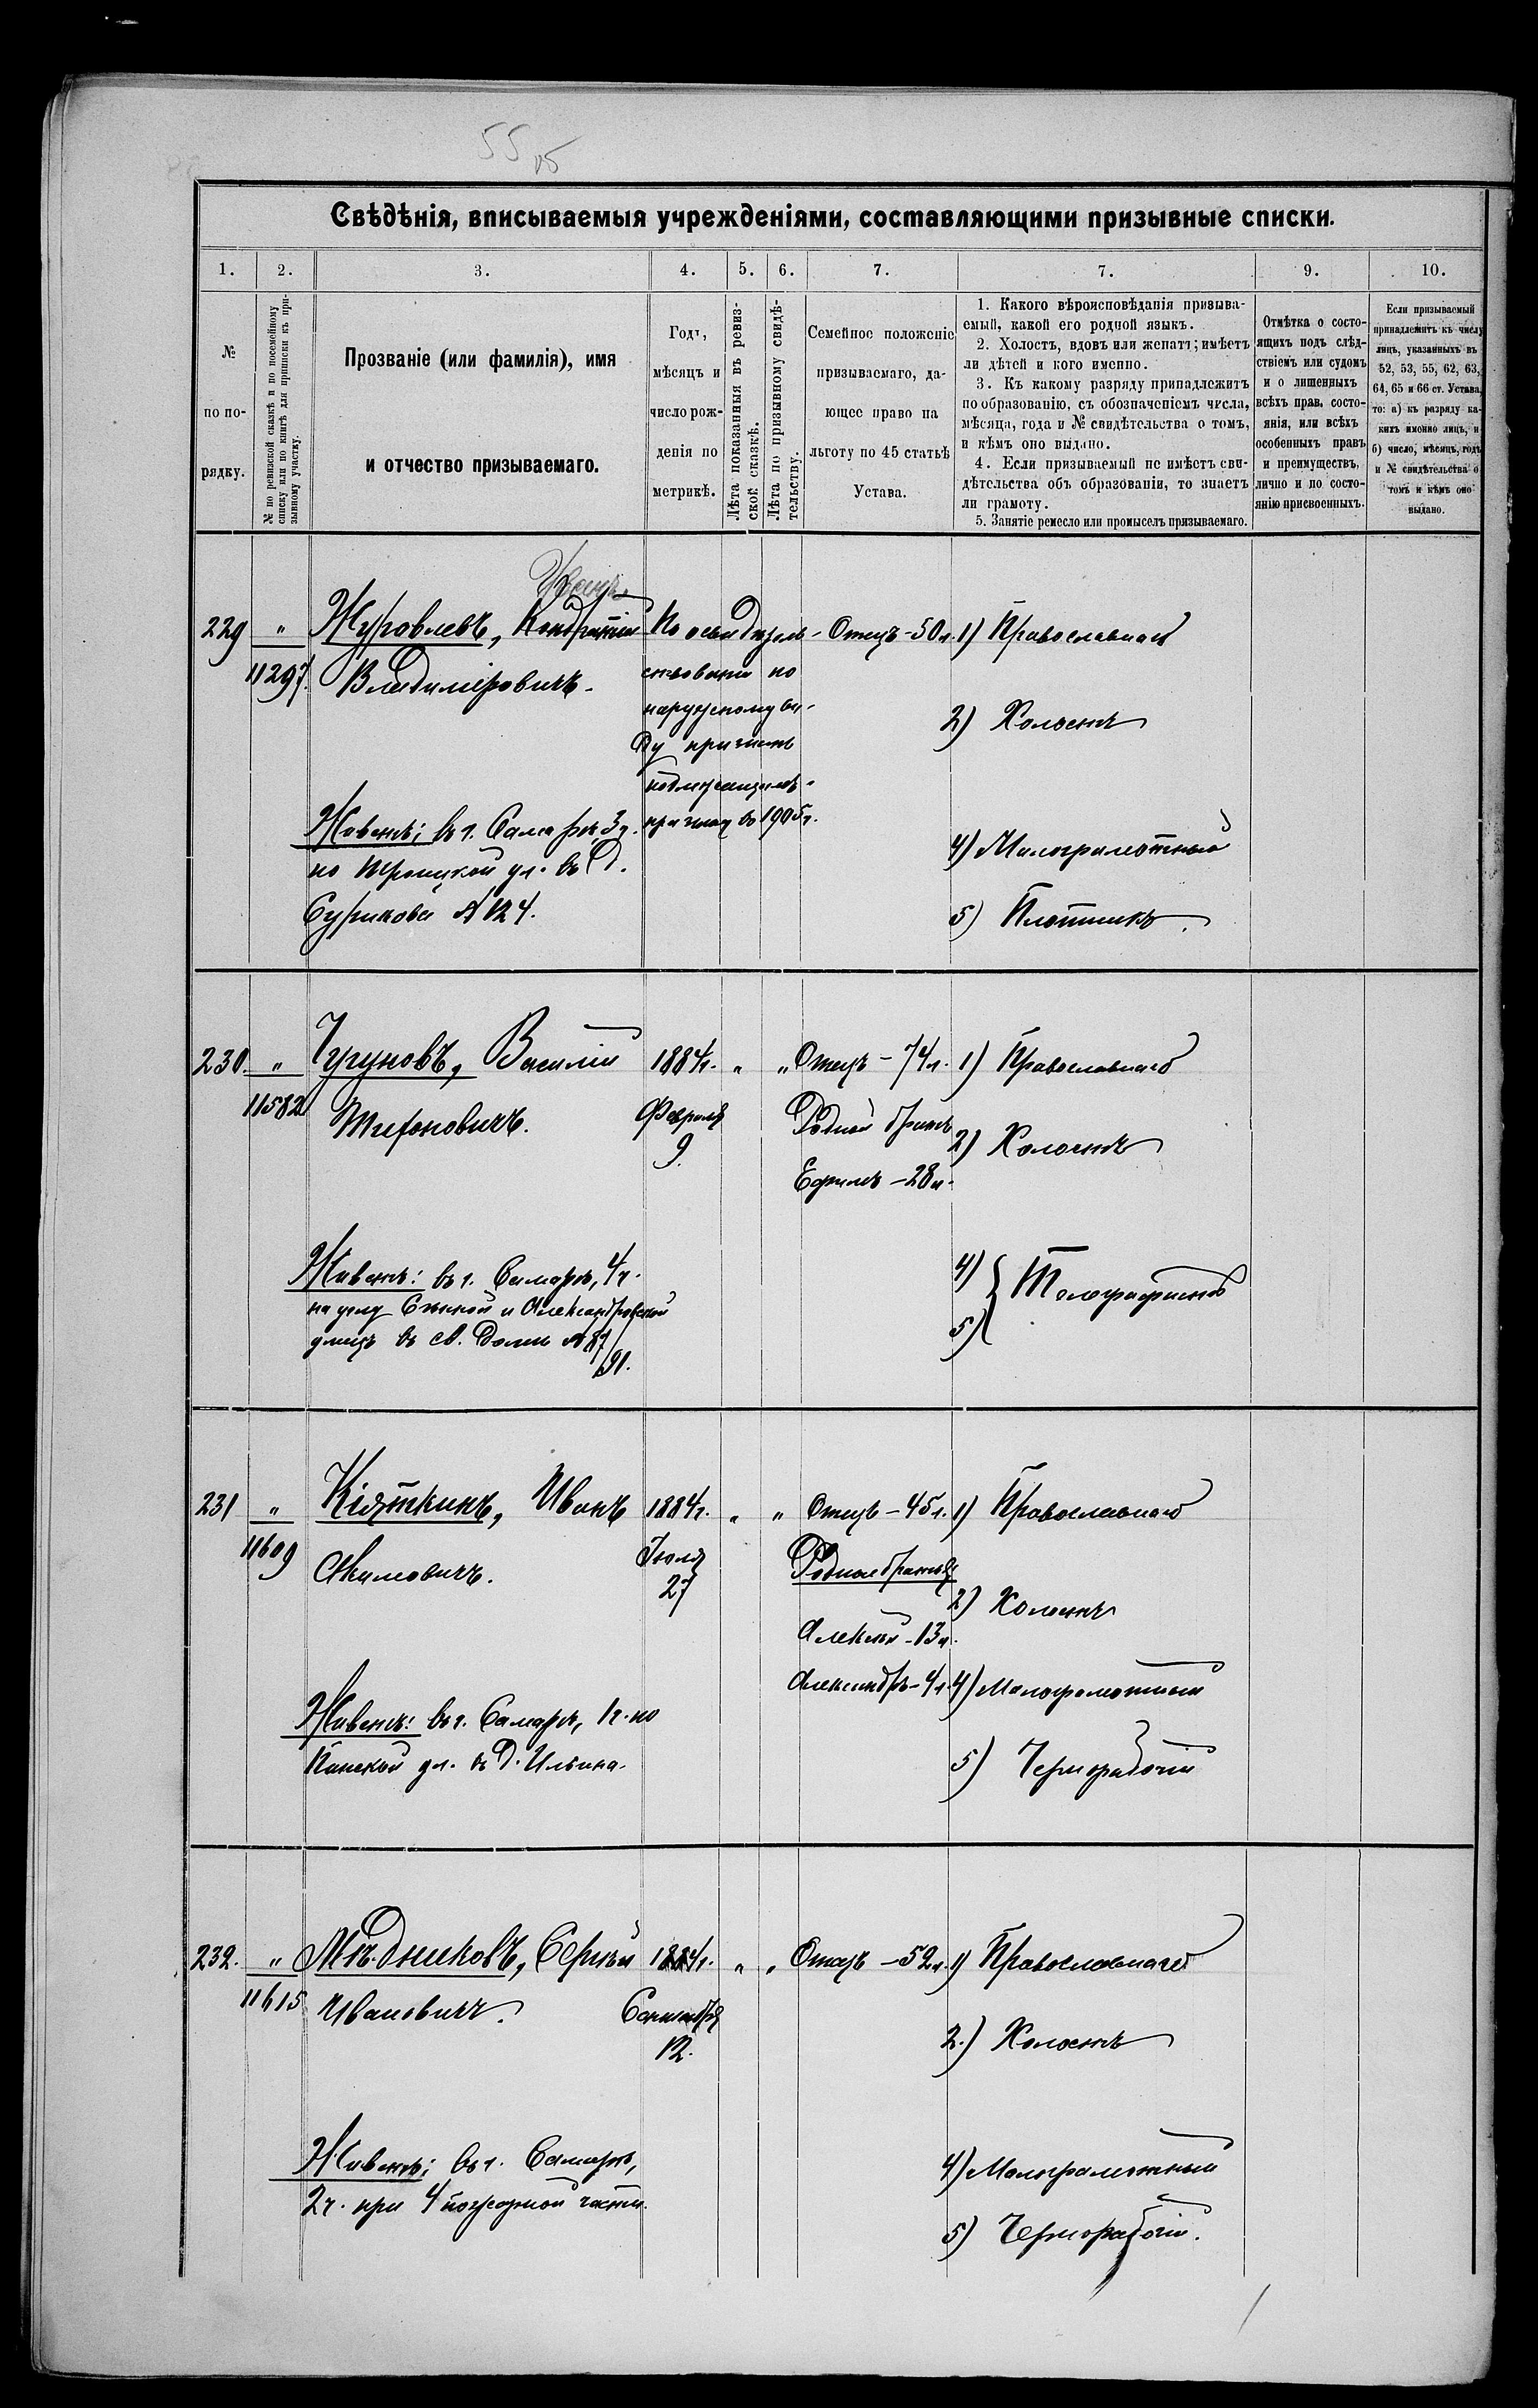 55 об
Свѣдѣнія, вписываемыя учрежденіями, составляющими призывные списки.
1. 2. 3. 4. 5. 6. 7. 7. 9. 10.
№ по порядку.
№ по ревизской сказкѣ и по посемейному списку или по книгѣ для приписки къ призывному участку.
Прозваніе (или фамилія), имя
и отчество призываемаго.
Годъ,
мѣсяцъ и
число рож-
денія по
метрикѣ.
Лѣта показанныя въ ревизской сказкѣ.
Лѣта по призывному свидѣтельству.
Семейное положеніе
призываемаго, да-
ющее право на
льготу по 45 статьѣ
Устава.
1. Какого вѣроисповѣданія призыва-
емый, какой его родной языкъ.
2. Холостъ, вдовъ или женатъ; имѣетъ
ли дѣтей и кого именно.
3. Къ какому разряду принадлежитъ
по образованію, съ обозначеніемъ числа,
мѣсяца, года и № свидѣтельства о томъ,
и кѣмъ оно выдано.
4. Если призываемый не имѣетъ сви-
дѣтельства объ образованіи, то знаетъ
ли грамоту.
5. Занятіе ремесло или промыселъ призываемаго.
Отмѣтка о состо-
ящихъ подъ слѣд-
ствіемъ или судомъ
и о лишенныхъ
всѣхъ прав. состо-
янія, или всѣхъ
особенныхъ правъ
и преимуществъ,
лично и по состо-
янію присвоенныхъ.
Если призываемый
принадлежитъ къ числу
лицъ, указанныхъ въ
52, 53, 55, 62, 63,
64, 65 и 66 ст. Устава,
то: а) къ разряду ка-
кихъ именно лицъ, и
б) число, мѣсяцъ, годъ
и № свидѣтельства о
томъ и кѣмъ оно
выдано.
Иванъ
229 " Журовлевъ, Кондратій По освидѣтель- Отецъ-50л. 1) Православнаго
11297. Владиміровичъ. ствованію по
наружному ви-
ду признанъ
подлежащимъ
призыву въ 1905г.
2) Холостъ
Живетъ: въ г. Самарѣ, 3ч.
по Троицкой ул. въ д.
Сурикова № 124.
4) Малограмотный
5) Плотникъ.
230. " Чугуновъ, Василій 1884г. " " Отецъ-74л. 1) Православнаго
11582 Тифоновичъ. Февраля
9.
Родной братъ
Ефимъ-28л.
2) Холостъ
Живетъ: въ г. Самарѣ, 4ч.
на углу Сѣнной и Александровской
улицъ въ св. домѣ № 87/91.
4)
5) Телеграфистъ
231 " Кіяткинъ, Иванъ 1884г. " " Отецъ-45л. 1) Православнаго
11609 Акимовичъ. Іюля
27
Родные братья
Алексѣй-13л.
Александръ-4л.
2) Холостъ
4) Малограмотный
Живетъ: въ г. Самарѣ, 1ч. по
Панской ул. въ д. Ильина.
5) Чернорабочій
232. " Мѣдниковъ, Сергѣй 1884г. " " Отецъ-52л. 1) Православнаго
11615 Ивановичъ. Сентября
12.
2.) Холостъ
Живетъ: въ г. Самарѣ,
2ч. при 4 пожарной части.
4) Малограмотный
5) Чернорабочій.